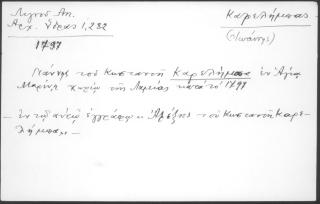 Λιγνοῦ Αν.
Αρχ. Ὕδρας 1,232
Καρελήμπας
(Ἰωάννης)
1797
Γιάννης τοῦ Κωσταντῆ Καρελήμπα ἐν Ἁγίᾳ
Μαρίνῃ χωρίῳ τῆς Λαμίας κατὰ τὸ 1797
— ἐν τῷ αὐτῷ ἐγγράφῳ κ. Ἀλέξης τοῦ Κωσταντῆ Καρε-
λήμπα, —